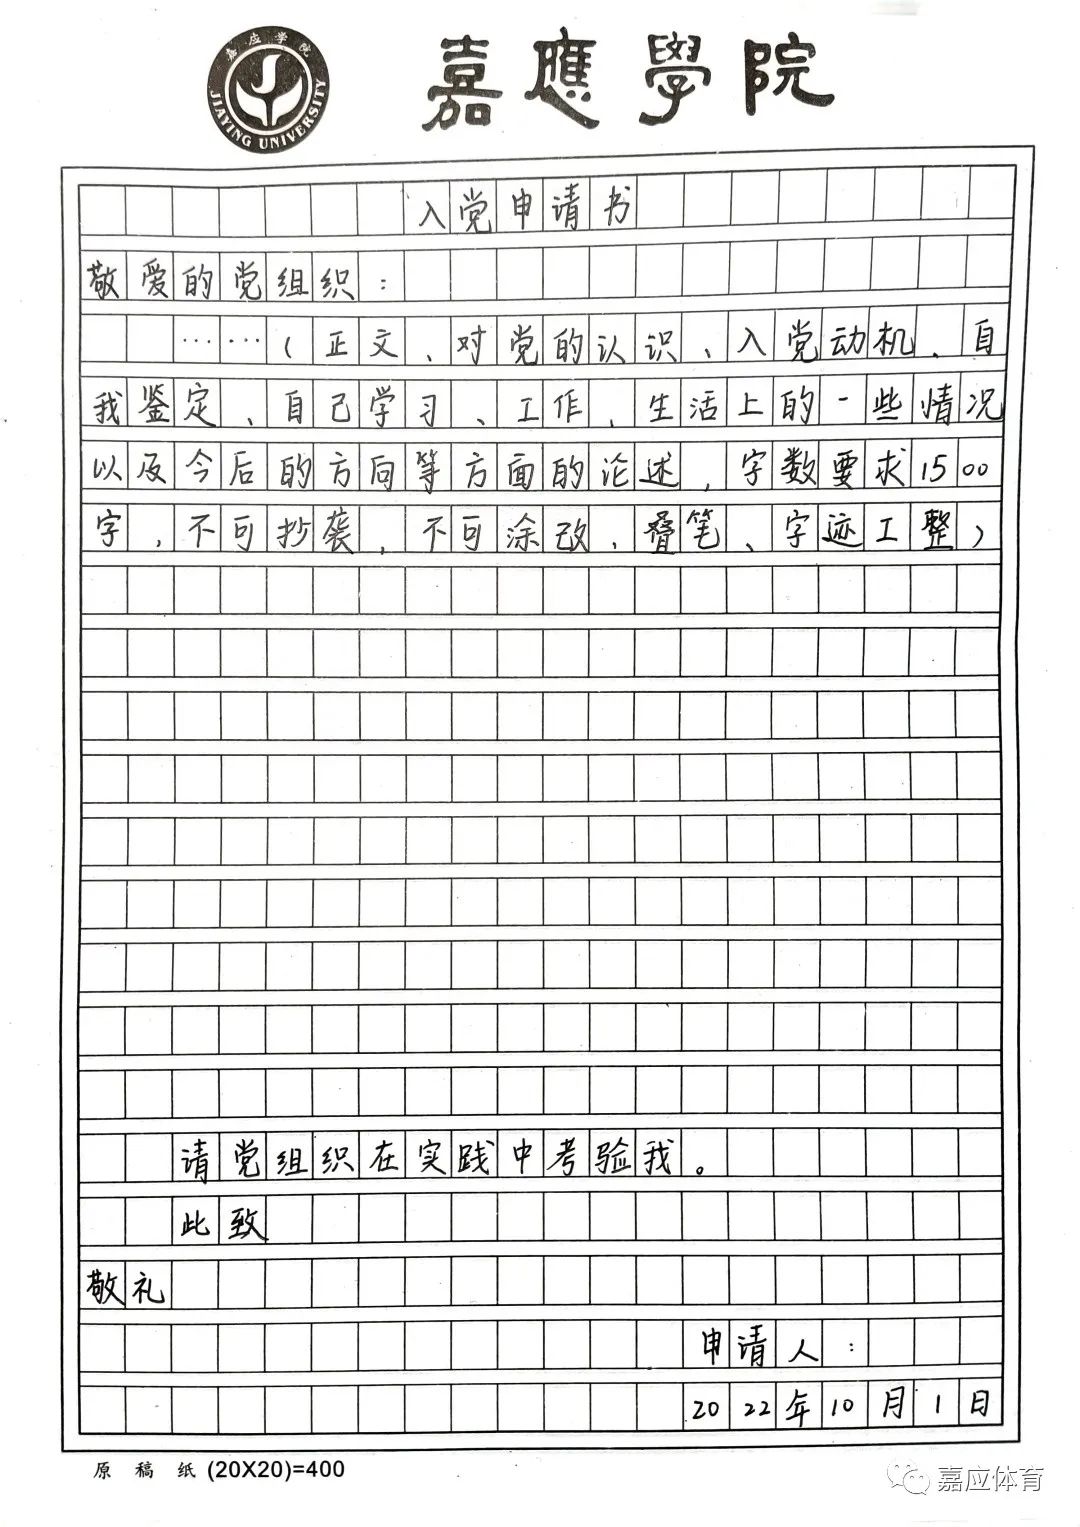 嘉应学院
JIAYING UNIVERSITY
嘉應學院
入党申请书
敬爱的党组织：
……（正文、对党的认识、入党动机、自
我鉴定、自己学习、工作、生活上的一些情况
以及今后的方向等方面的论述，字数要求1500
字，不可抄袭，不可涂改、叠笔、字迹工整）
请党组织在实践中考验我。
此致
敬礼
申请人：
2022年10月1日
原稿纸(20X20)=400
嘉应体育